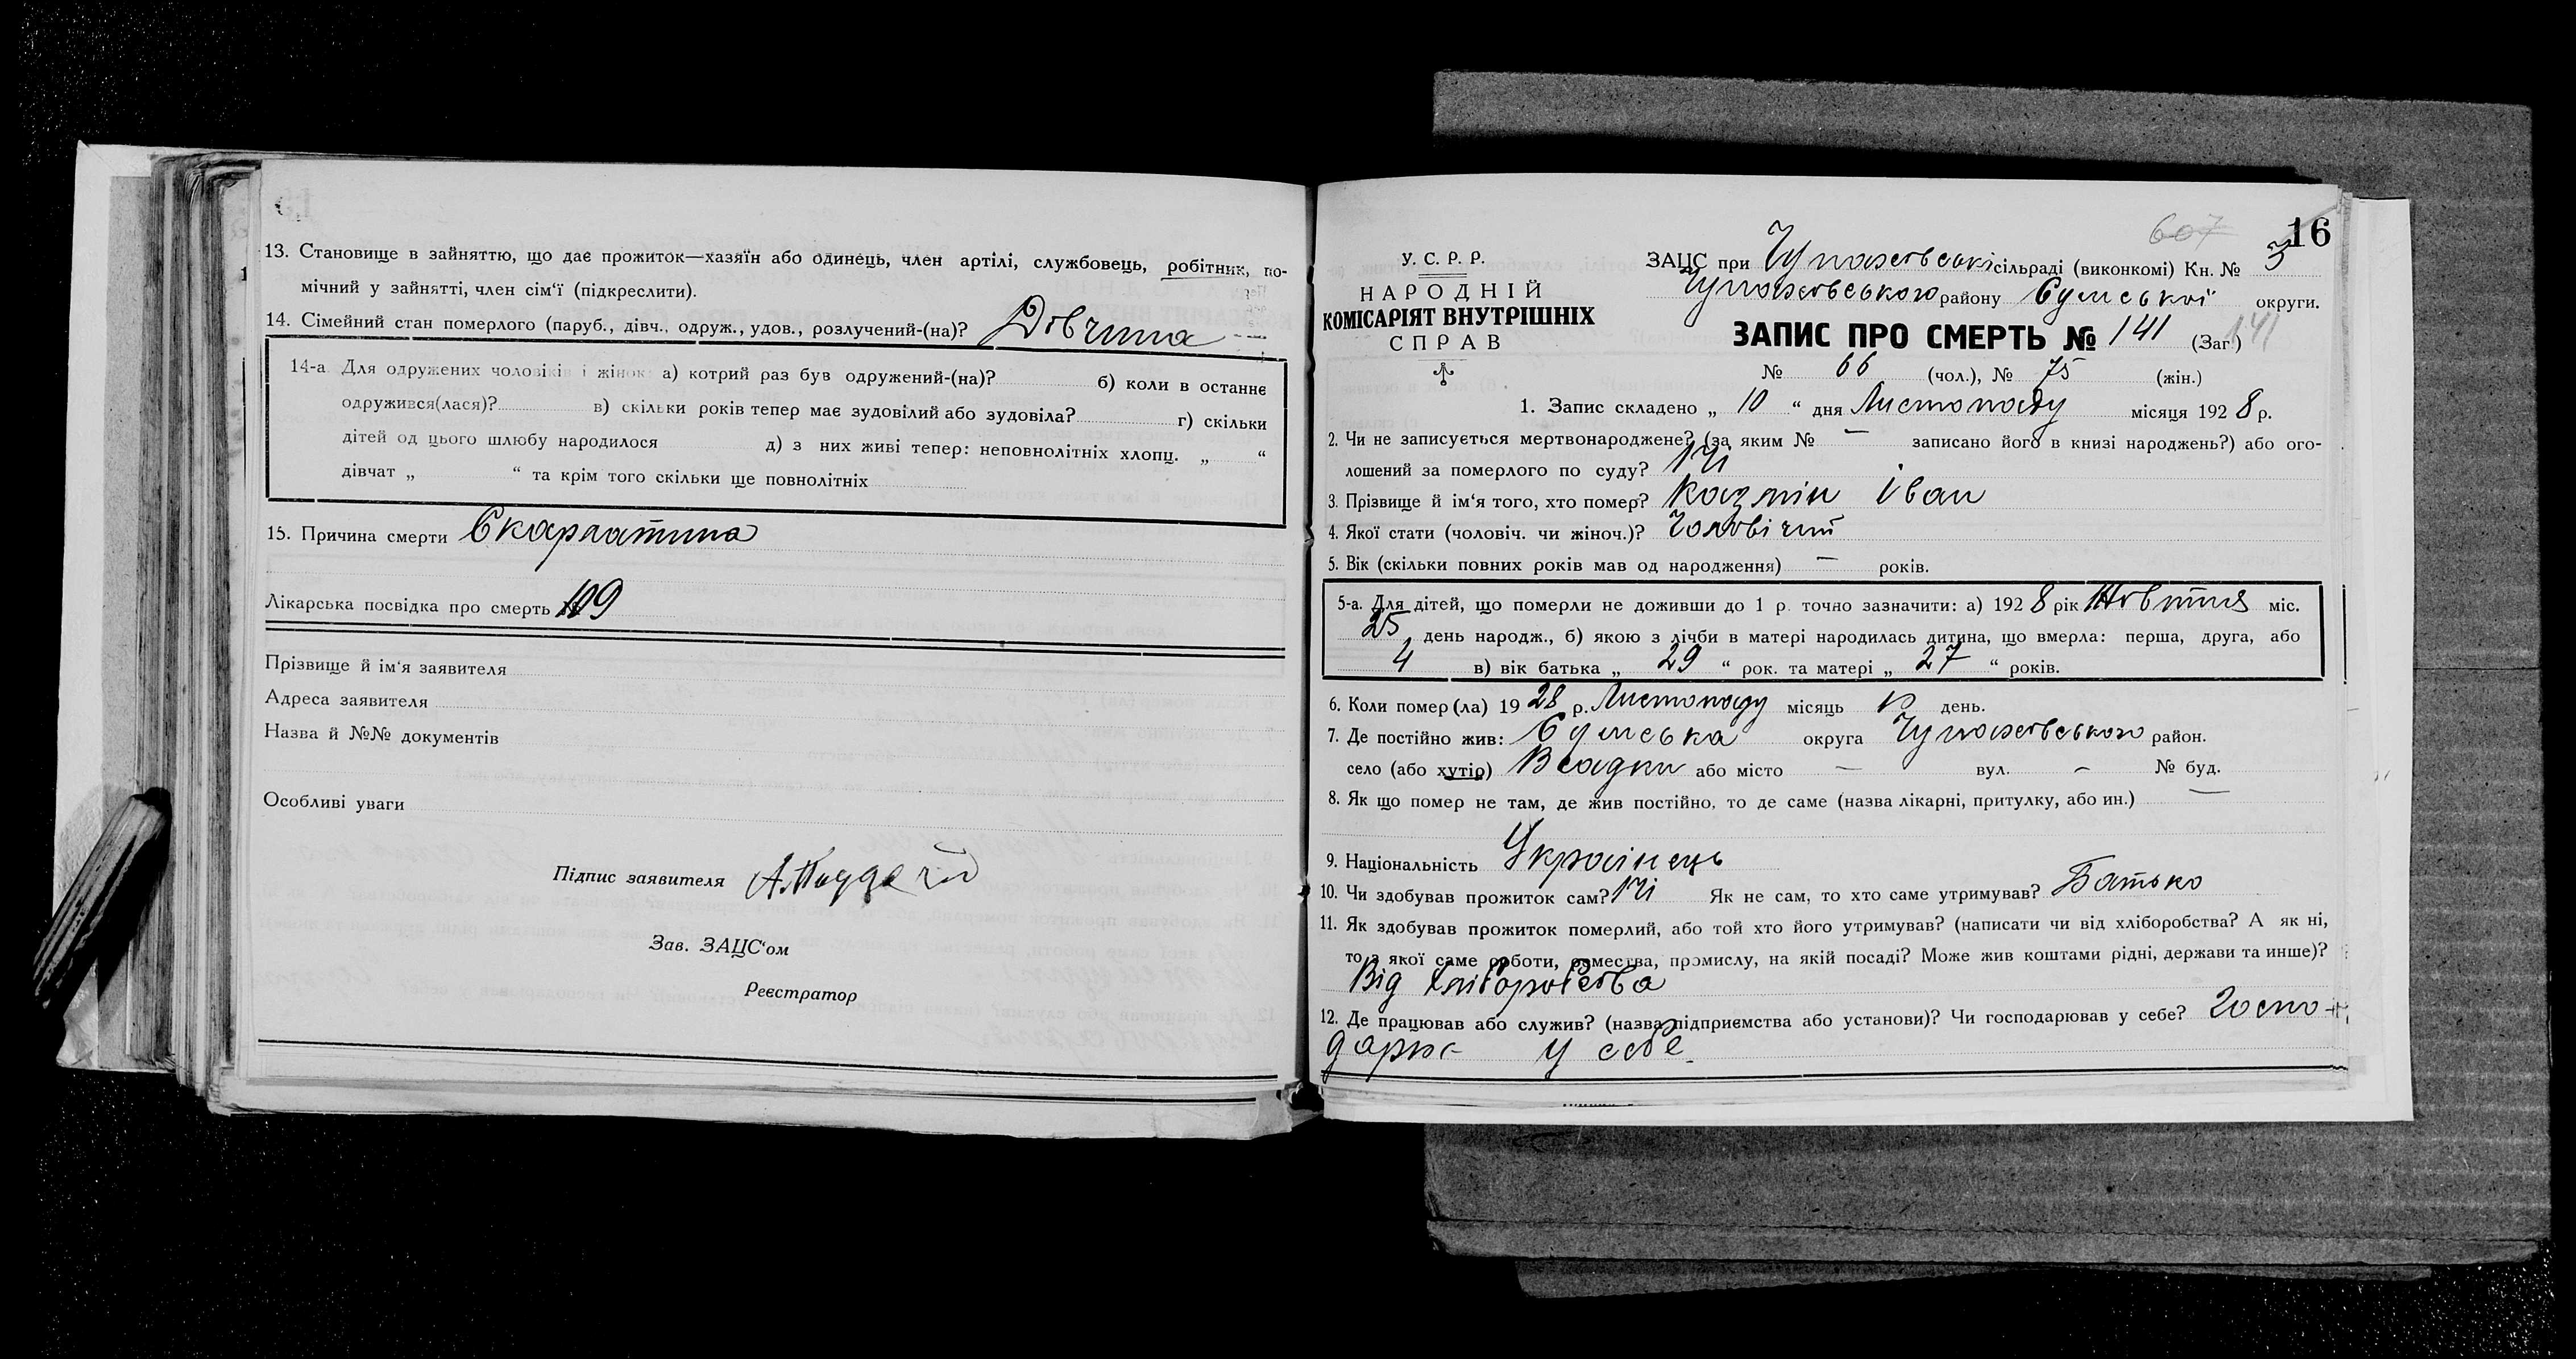 13. Становище в зайняттю, що дає прожиток—хазяїн або одинець, член артілі, службовець, робітник, по-
мічний у зайнятті, член сім'ї (підкреслити).
14. Сімейний стан померлого (паруб., дівч., одруж., удов., розлучений-(на)? Дівчина
14-а. Для одружених чоловіків і жінок: а) котрий раз був одружений-(на)? б) коли в останнє
одружився(лася)? в) скільки років тепер має зудовілий або зудовіла? г) скільки
дітей од цього шлюбу народилося д) з них живі тепер: неповнолітніх хлопц. „ “
дівчат „ “ та крім того скільки ще повнолітніх
15. Причина смерти Скарлатина
Лікарська посвідка про смерть № 109
Прізвище й ім'я заявителя
Адреса заявителя
Назва й №№ документів
Особливі уваги
Підпис заявителя
Зав. ЗАЦС'ом
Реєстратор
607 16
У. С. Р. Р.
НАРОДНІЙ
КОМІСАРІЯТ ВНУТРІШНІХ
СПРАВ
ЗАЦС при Чупахівські сільраді (виконкомі) Кн. № 3
Чупахівського району Сумської округи.
ЗАПИС ПРО СМЕРТЬ № 141 (Заг.) 141
№ 66 (чол.), № 75 (жін.)
1. Запис складено „ 10 “ дня Листопаду місяця 1928 р.
2. Чи не записується мертвонароджене? (за яким № — записано його в книзі народжень?) або ого-
лошений за померлого по суду? Ні
3. Прізвище й ім'я того, хто помер? Казмін Іван
4. Якої стати (чоловіч. чи жіноч.)? Чоловічий
5. Вік (скільки повних років мав од народження) — років.
5-а. Для дітей, що померли не доживши до 1 р. точно зазначити: а) 1928 рік Жовтня міс.
25 день народж., б) якою з лічби в матері народилась дитина, що вмерла: перша, друга, або
4 в) вік батька „ 29 “ рок. та матері „ 27 “ років.
6. Коли помер(ла) 1928 р. Листопаду місяць 10 день.
7. Де постійно жив: Сумська округа Чупахівського район.
село (або хутір) Всадки або місто — вул. — № буд.
8. Як що помер не там, де жив постійно, то де саме (назва лікарні, притулку, або ин.) —
9. Національність Українець
10. Чи здобував прожиток сам? Ні Як не сам, то хто саме утримував? Батько
11. Як здобував прожиток померлий, або той хто його утримував? (написати чи від хліборобства? А як ні,
то з якої саме роботи, ремества, промислу, на якій посаді? Може жив коштами рідні, держави та инше)?
Від Хліборобства
12. Де працював або служив? (назва підприємства або установи)? Чи господарював у себе? Госпо-
дарює у себе